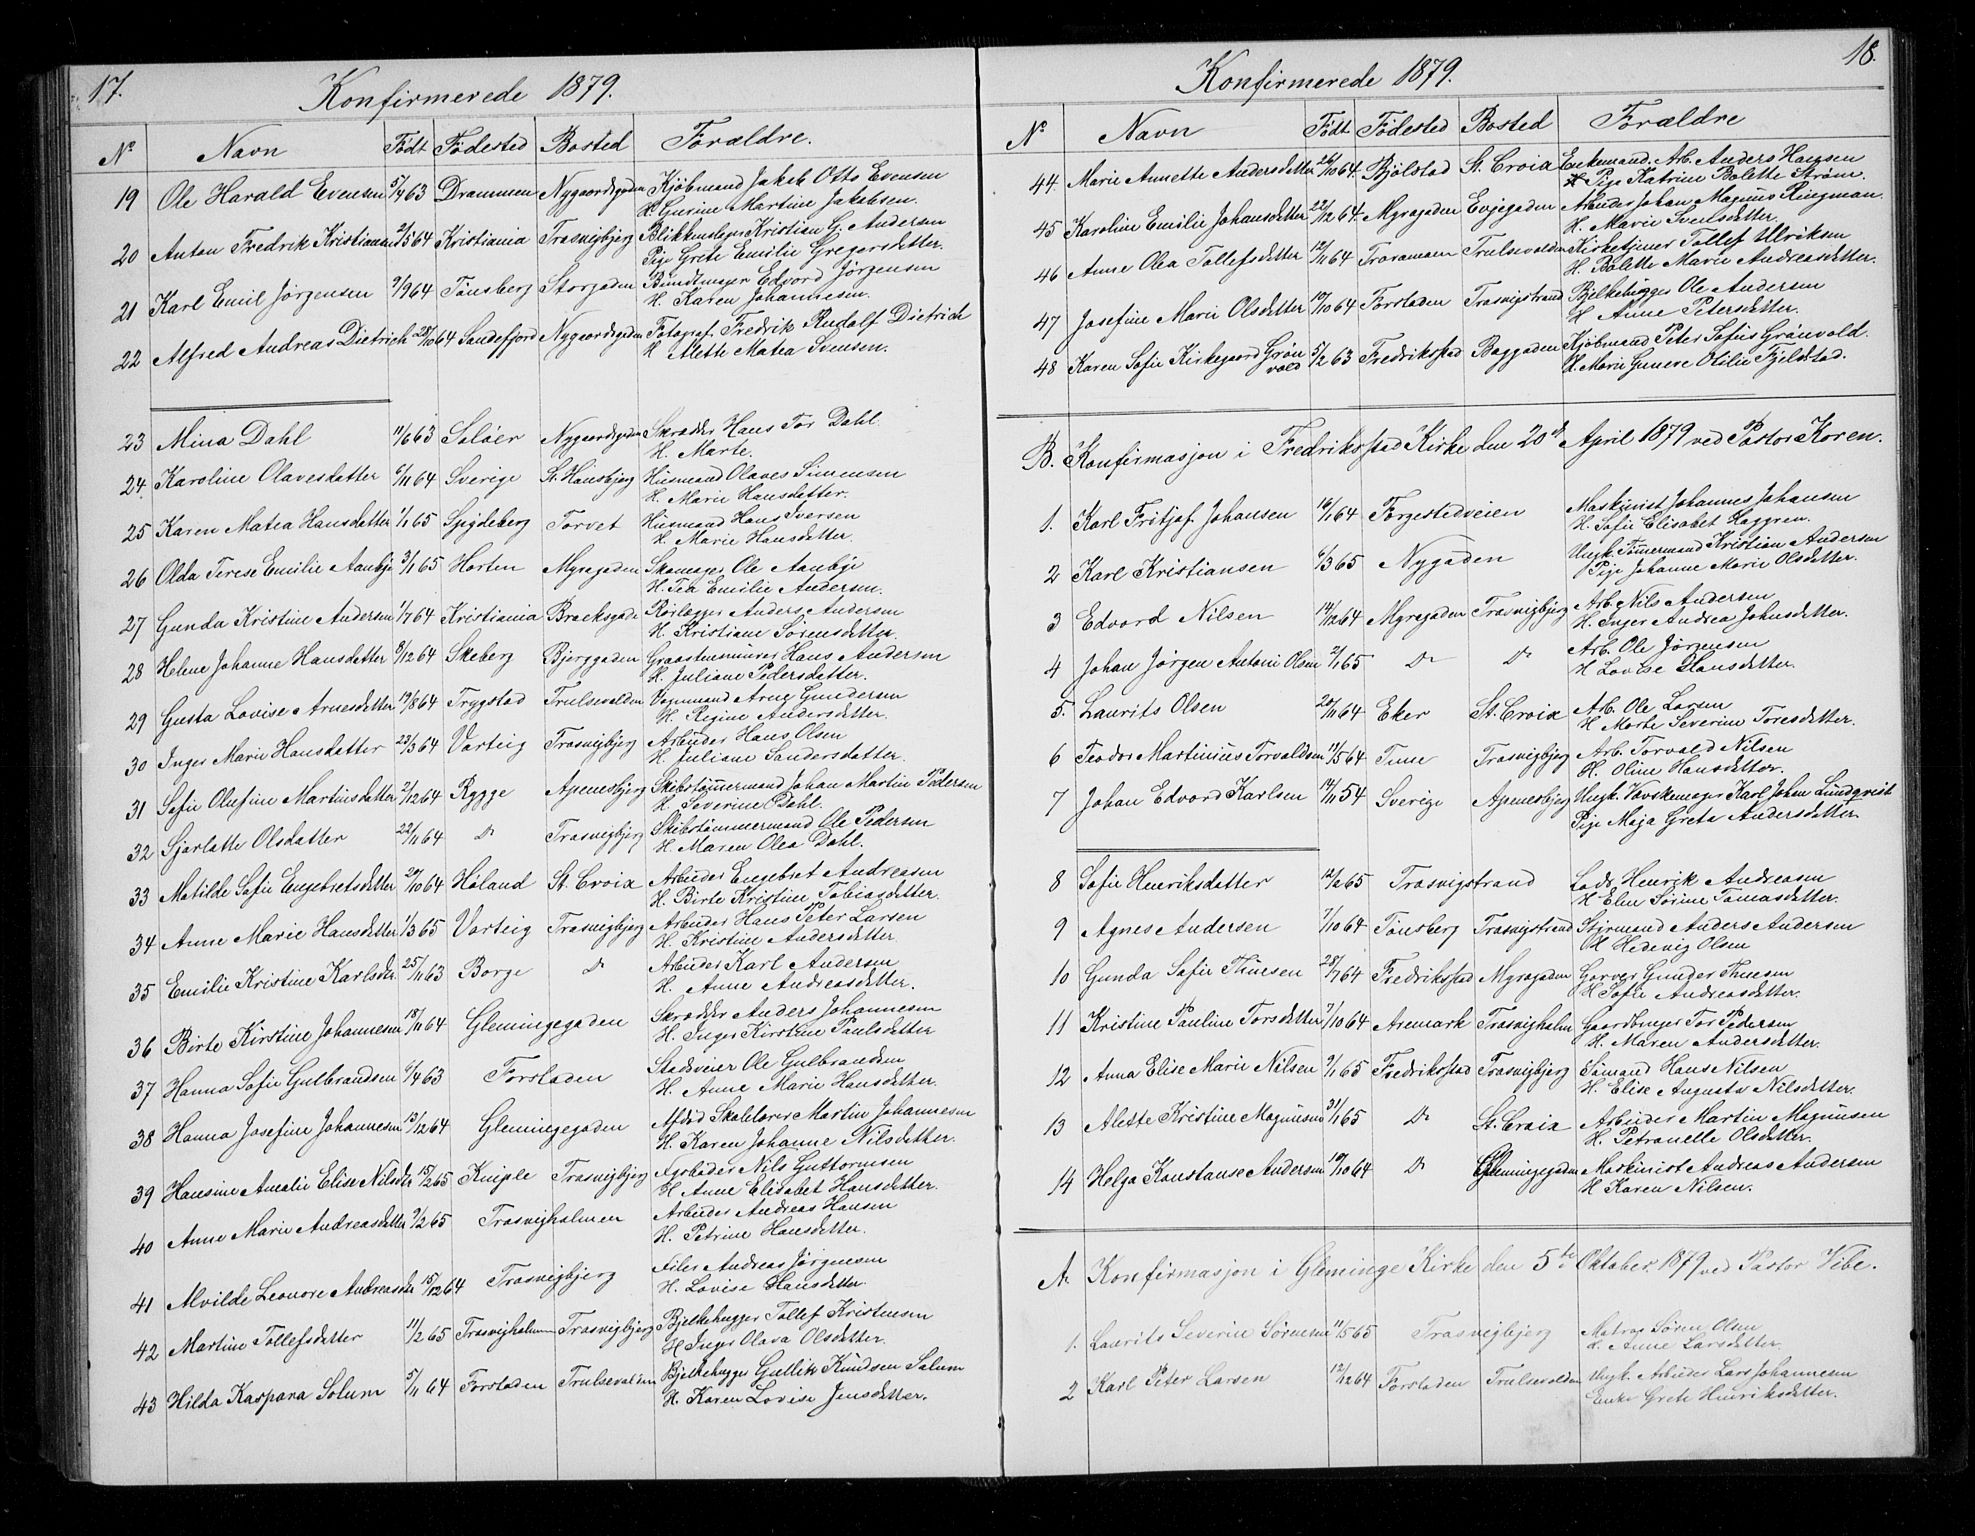 17.
Konfirmerede 1879.
No Navn Født Fødested Bosted Forældre.
19 Ole Harald Evensen 5/4 63 Drammen Nygaardsgaden Kjøbmand Jakob Otto Evensen
H. Gurine Martine Jakobsen.
20 Anton Fredrik Kristiansen 2/5 64 Kristiania Trosvigbjerg Blikkenslager Kristian G. Andersen
Pige Grete Emilie Gregersdetter.
21 Karl Emil Jørgensen 9/9 64 Tønsberg Storgaden Bundtmager Edvard Jørgensen
H. Karen Johannesen.
22 Alfred Andreas Dietrich 28/10 64 Sandefjord Nygaardsgaden Fotograf Fredrik Rudolf Dietrich
H. Alette Matea Svensen.
23 Mina Dahl 11/6 63 Soløer Nygaardsgaden Skrædder Hans Tor Dahl.
H. Marte.
24. Karoline Olavesdatter 6/11 64 Sverige St. Hansbjerg Husmand Olaves Simensen
H. Marie Hansdetter.
25 Karen Matea Hansdetter 1/1 65 Spydeberg Torvet Husmand Hans Iversen
H. Marie Hansdetter.
26 Olda Terese Emilie Aanbye 3/1 65 Horten Myregaden Skomager Ole Aanbye
H. Tea Emilie Andersen.
27 Gunda Kristine Andersen 1/7 64 Kristiania Brocksgade Rørlægger Anders Andersen
H. Kristiane Sørensdetter.
28 Helene Johanne Hansdetter 8/12 64 Skeberg Bjerggaden Graastensmurer Hans Andersen
H. Juliane Pedersdetter.
29 Gusta Lovise Arnesdetter 19/8 64 Trygstad Trulsevolden Vognmand Arne Gundersen
H. Regine Andersdetter.
30 Inger Marie Hansdatter 23/3 64 Varteig Trosvigbjerg Arbeider Hans Olsen
H. Juliane Sandersdatter.
31 Sofie Olufine Martinsdetter 2/12 64 Rygge Apenesbjerg Skibstømmermand Johan Martin Pedersen
H. Severine Dahl.
32 Sjarlotte Olsdatter 22/11 64 Do Trosvigbjerg Skibstømmermand Ole Pedersen
H. Maren Olea Dahl.
33 Matilde Sofie Engebretsdetter 20/10 64 Høland St. Croix Arbeider Engebret Andreasen
H. Birte Kristine Tobiasdetter.
34 Anne Marie Hansdetter 1/3 65 Varteig Trosvigbjerg Arbeider Hans Peter Larsen
H. Kristine Andersdetter
35 Emilie Kristine Karlsdtr. 25/11 63 Borge Do Arbeider Karl Andersen
H. Anne Andreasdetter.
36 Birte Kirstine Johannesen 18/11 64 Glemingegaden Skrædder Anders Johannesen
H. Inger Kirstine Paulsdetter
37 Hanna Sofie Gulbrandsen 6/4 63 Forstaden Stedsveier Ole Gulbrandsen
H. Anne Marie Hansdetter.
38 Hanna Josefine Johannesen 13/12 64 Glemingegaden Afdød Skolelærer Martin Johannesen
H. Karen Johanne Nilsdetter.
39 Hansine Amalie Elise Nilsdtr 15/2 65 Kniple Trosvigbjerg Arbeider Nils Guttormsen
H. Anne Elisabet Hansdetter.
40 Anne Marie Andreasdetter 9/2 65 Trosvigholmen Arbeider Andreas Hansen
H. Petrine Hansdetter.
41 Alvilde Leonore Andreasdtr 15/12 64 Trosvigbjerg Filer Andreas Jørgensen
H. Lovise Hansdetter.
42 Martine Tollefsdetter 11/2 65 Trosvigholmen Trosvigbjerg Bjelkehugger Tollef Kristensen
H. Inger Olava Olsdetter.
43 Hilda Kaspara Solum 5/11 64 Forstaden Trulsevolden Bjelkehugger Gullik Knudsen Solum
H. Karen Lovise Jensdetter.
18.
Konfirmerede 1879.
No Navn Født Fødested Bosted Forældre
44 Marie Annette Andersdetter 26/10 64. Bjølstad St. Croix Enkemand. Arb. Anders Hansen
Pige Katrine Bolette Strøm.
45 Karoline Emilie Johansdetter 22/12 64. Myragaden Evjegaden Arbeider Johan Magnus Ringman.
H. Marie Svensdetter.
46 Anne Olea Tollefsdetter 12/11 64 Traramoen Trulsevolden Kirketjener Tollef Ulriksen
H. Bolette Marie Andreasdetter.
47 Josefine Marie Olsdetter 19/10 64 Forstaden Trosvigstrand Bjelkehugger Ole Andersen
H. Anne Petersdetter.
48 Karen Sofie Kirkegaard Grøn
vold 5/2 63 Fredrikstad Baggaden Kjøbmand Peter Sofus Grønvold.
H. Marie Gunere Otilie Fjeldstad.
B. Konfirmasjon i Fredriksstad Kirke den 20de April 1879 ved Pastor Koren.
1. Karl Fritjof Johansen 16/1 64 Forgestedveien Maskinist Johannes Johansen
H. Sofie Elisabet Haggren.
2 Karl Kristiansen 6/3 65 Nygaden Ungk. Tømmermand Kristian Andersen
Pige Johanne Marie Olsdetter.
3 Edvard Nilsen 14/12 64 Myragaden Trosvigbjerg Arb. Nils Andersen
H. Inger Andrea Johnsdetter.
4 Johan Jørgen Antoni Olsen 21/1 65 Do Do Arb. Ole Jørgensen
H Lovise Hansdetter.
5. Laurits Olsen 20/11 64 Eker St. Croix Arb. Ole Larsen
H. Marte Severine Toresdetter.
6 Teodor Martinius Torvaldsen 11/5 64 Tune Trosvigbjerg Arb. Torvald Nilsen
H. Oline Hansdetter.
7 Johan Edvard Karlsen 14/11 54 Sverige Apenesbjerg Ungk. Vævskemager Karl Johan Lundqvist
Pige Maja Greta Andersdetter.
8 Sofie Henriksdatter 12/2 65 Trosvigstrand Lods Henrik Andreasen
H. Elen Sørine Tomasdetter.
9 Agnes Andersen 7/10 64 Tønsberg Trosvigstrand Styrmand Anders Andersen
H. Hedevig Olsen
10 Gunda Sofie Thuesen 28/7 64 Fredriksstad Myragaden Garver Gunder Thuesen
H Sofie Andreasdetter.
11 Kristine Pauline Torsdetter 7/10 64 Aremark Trosvigholm Gaardbruger Tor Pedersen
H. Maren Andersdetter.
12 Anna Elise Marie Nilsen 9/1 65 Fredriksstad Trosvigbjerg Sømand Hans Nilsen
H. Elise Augusta Nilsdetter.
13 Alette Kristine Magnussen 31/1 65 Do St. Croix Arbeider Martin Magnusen
H. Petronelle Olsdetter.
14 Helga Konstanse Andersen 19/10 64 Do Glemingegaden Maskinist Andreas Andersen
H Karen Nilsen.
A. Konfirmasjon i Gleminge Kirke den 5te Oktober 1879 ved Pastor Vibe.
1. Laurits Severin Sørensen 11/5 65 Trosvigbjerg Matros Søren Olsen
H. Anne Larsdetter.
2 Karl Peter Larsen 12/12 64 Forstaden Trulsevolden Ungk. Arbeider Lars Johannesen
Enke Grete Henriksdetter.